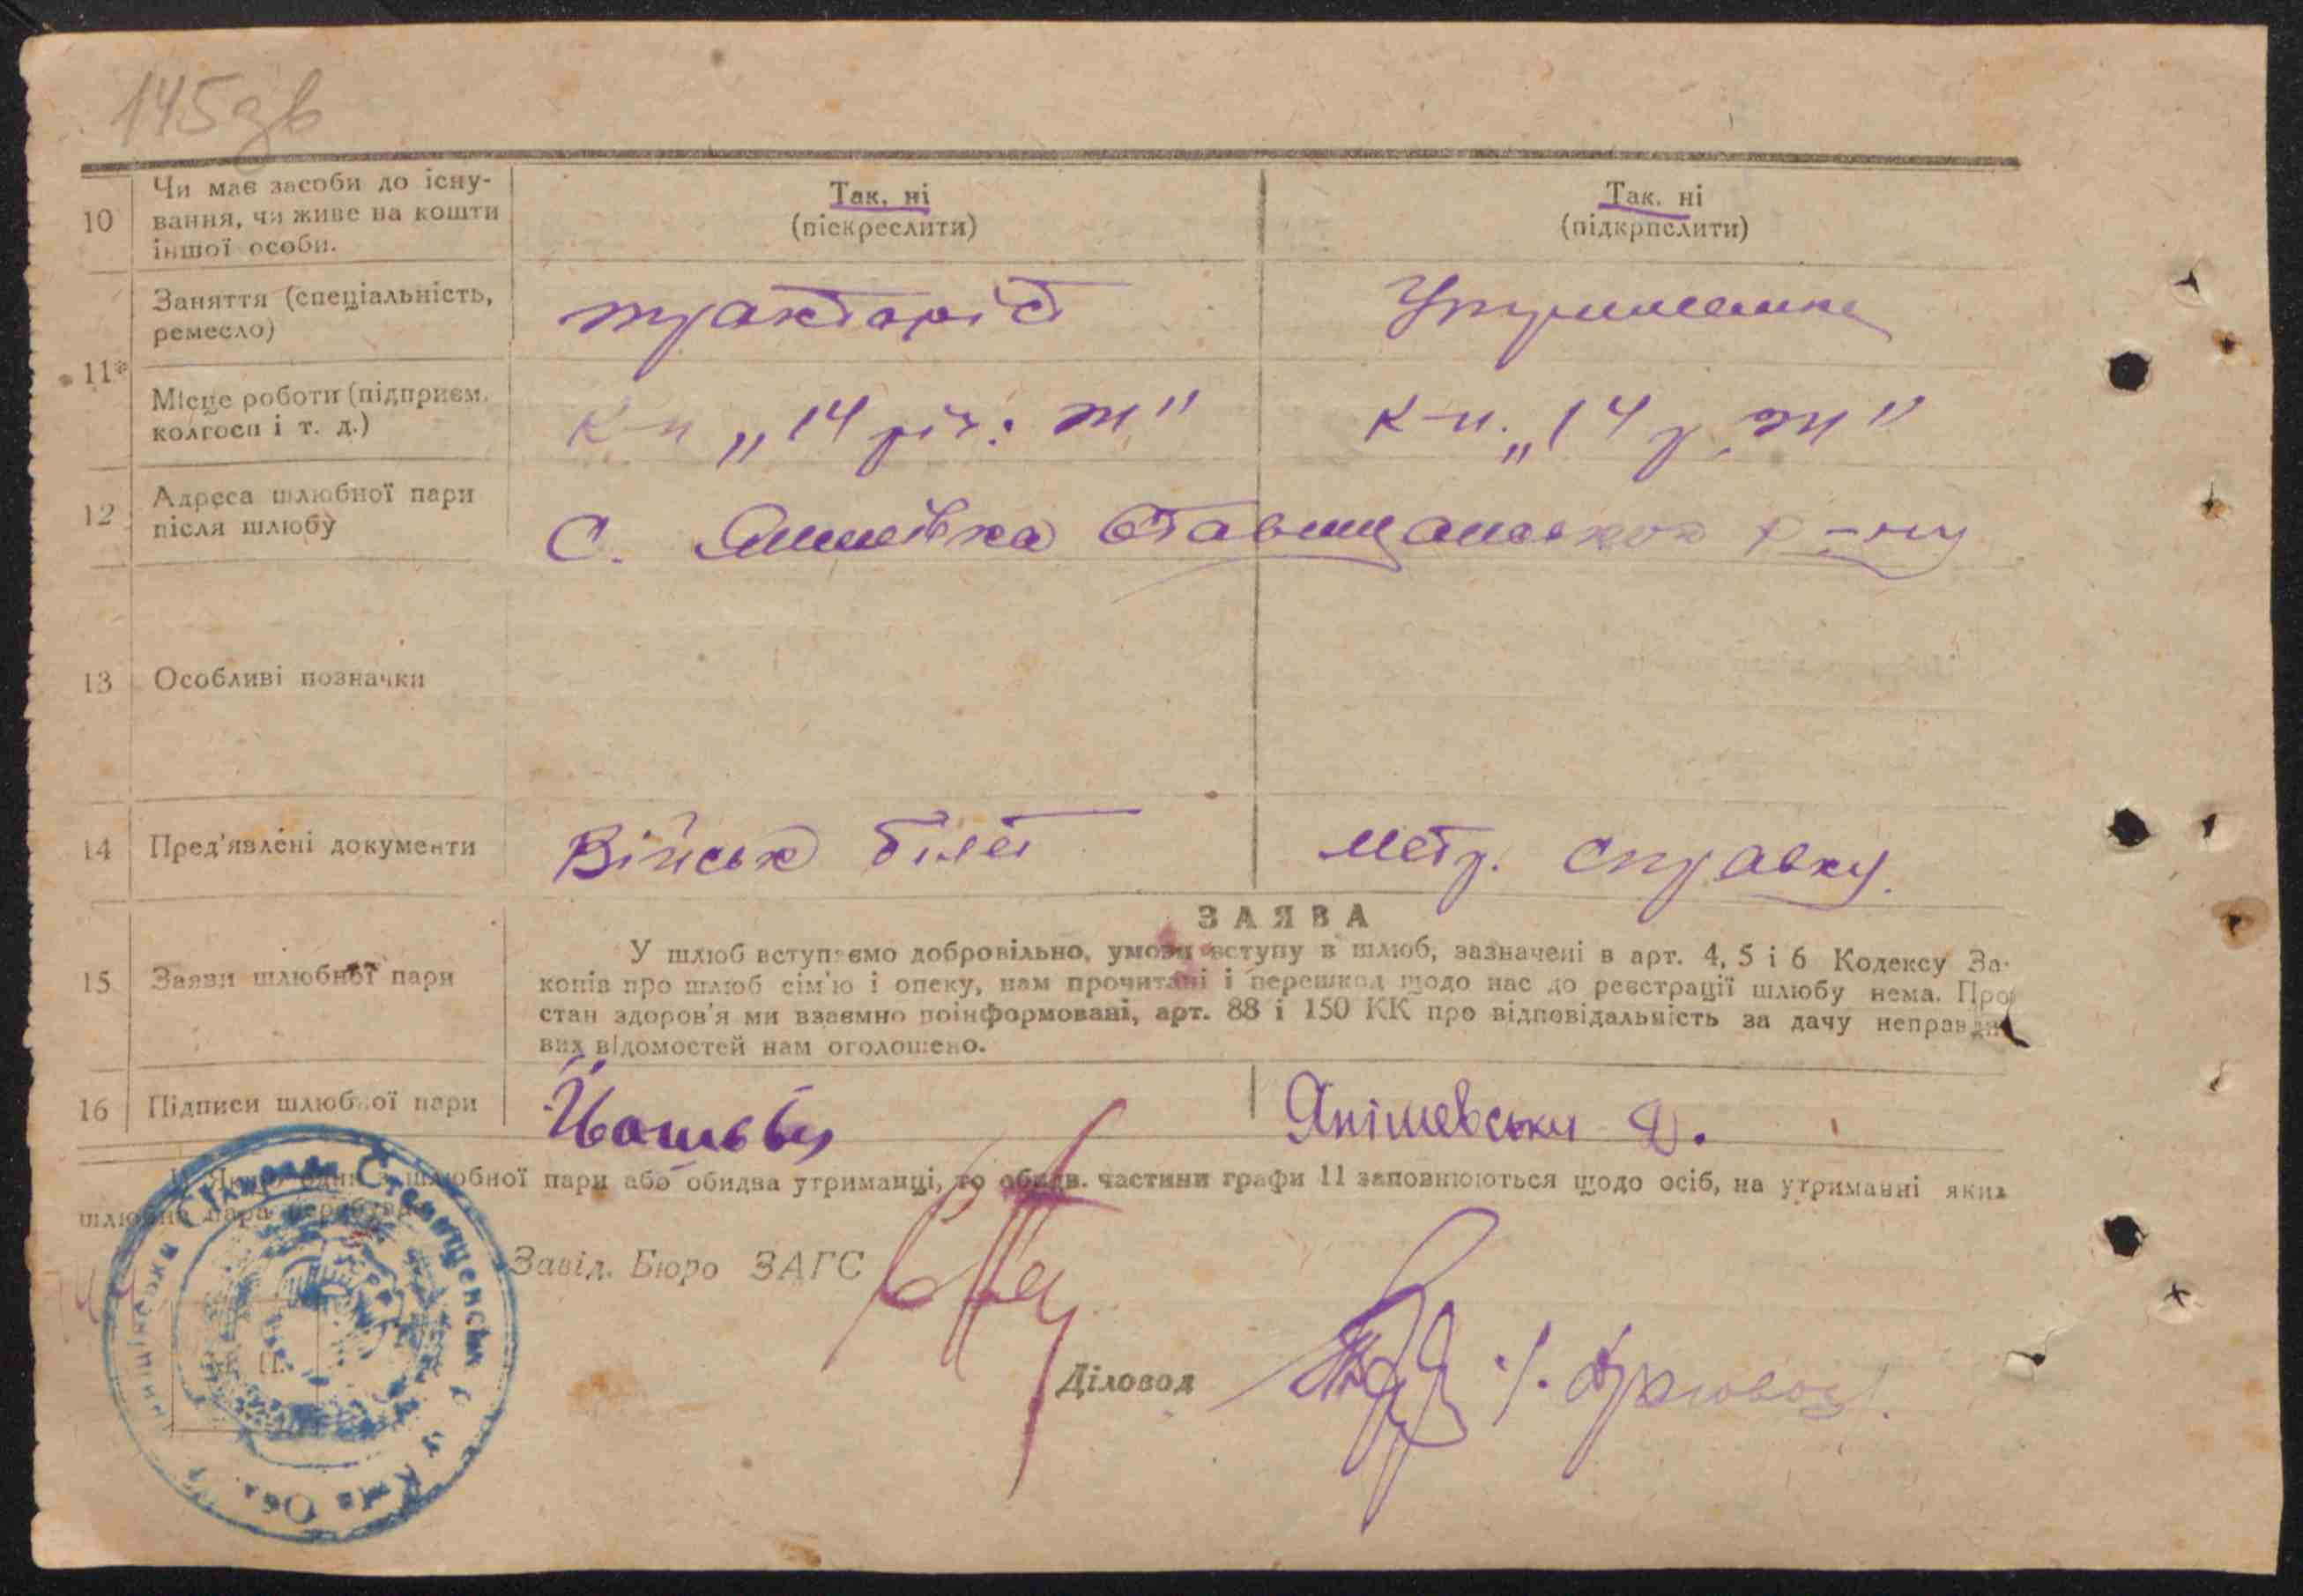 145зв
10 Чи має засоби до існу-
вання, чи живе на кошти
іншої особи.
Так, ні
(піскреслити)
Так. ні
(підкрпслити)
11*
Заняття (спеціальність,
ремесло)
тракторіст
Місце роботи (підприєм.
колгосп і т. д.)
к-п „14 річ. ж"
к-п. „14 р. ж"
12 Адреса шлюбної пари
після шлюбу
С. р-ну
13 Особливі позначки
14 Пред'явлені документи
Військ білет
метр. справку.
ЗАЯВА
15 Заяви шлюбної пари
У шлюб вступаємо добровільно, умови вступу в шлюб, зазначені в арт. 4, 5 і 6 Кодексу За-
конів про шлюб сім'ю і опеку, нам прочитані і перешкод щодо нас до реєстрації шлюбу нема. Про
стан здоров'я ми взаємно поінформовані, арт. 88 і 150 КК про відповідальність за дачу неправди
вих відомостей нам оголошено.
16 Підписи шлюбної пари
Янішевськи Я.
Якщо один з шлюбної пари або обидва утриманці, то обидв. частини графи 11 заповнюються щодо осіб, на утриманні яких
шлюбна пара перебуває
Завід. Бюро ЗАГС
Діловод